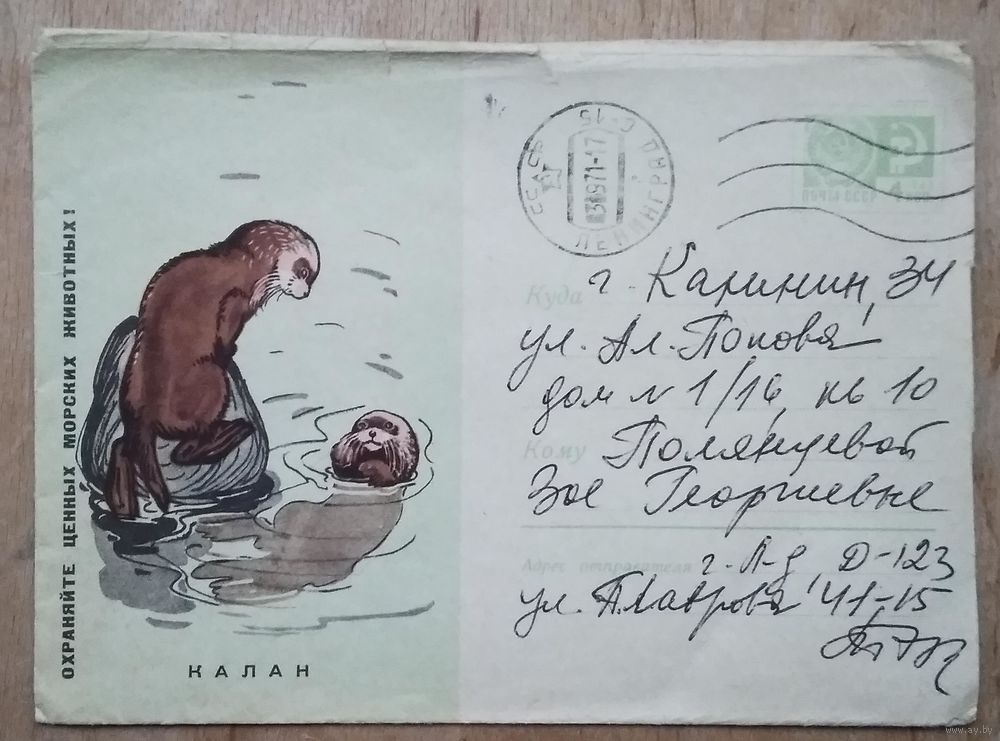 ОХРАНЯЙТЕ ЦЕННЫХ МОРСКИХ ЖИВОТНЫХ!
КАЛАН
СССР ЛЕНИНГРАД С-15
971-17
ПОЧТА СССР 4
Куда г. Калинин, 34
ул. Ал. Попова
дом N 1/16, кв 10
Кому Полянцевой
Зое Георгиевне
Адрес отправителя г. Л-д, Д-123
ул. П.Лаврова 41-15
www.ay.by